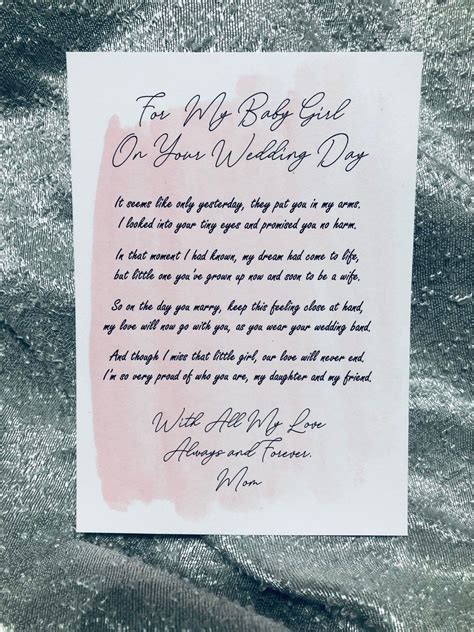 For My Baby Girl
On Your Wedding Day
It seems like only yesterday, they put you in my arms.
I looked into your tiny eyes and promised you no harm.
In that moment I had known, my dream had come to life,
but little one you've grown up now and soon to be a wife.
So on the day you marry, keep this feeling close at hand,
my love will now go with you, as you wear your wedding band.
And though I miss that little girl, our love will never end.
I'm so very proud of who you are, my daughter and my friend.
With All My Love
Always and Forever.
Mom